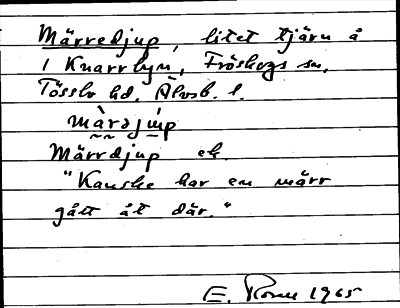 Märredjup, litet tjärn å
i Knarrbyn, Fröskogs sn,
Tössbo hd, Älvsb. l.
màrdjúp
Märrdjup ek.
"Kanske har en märr
gått åt där."
E. 1965